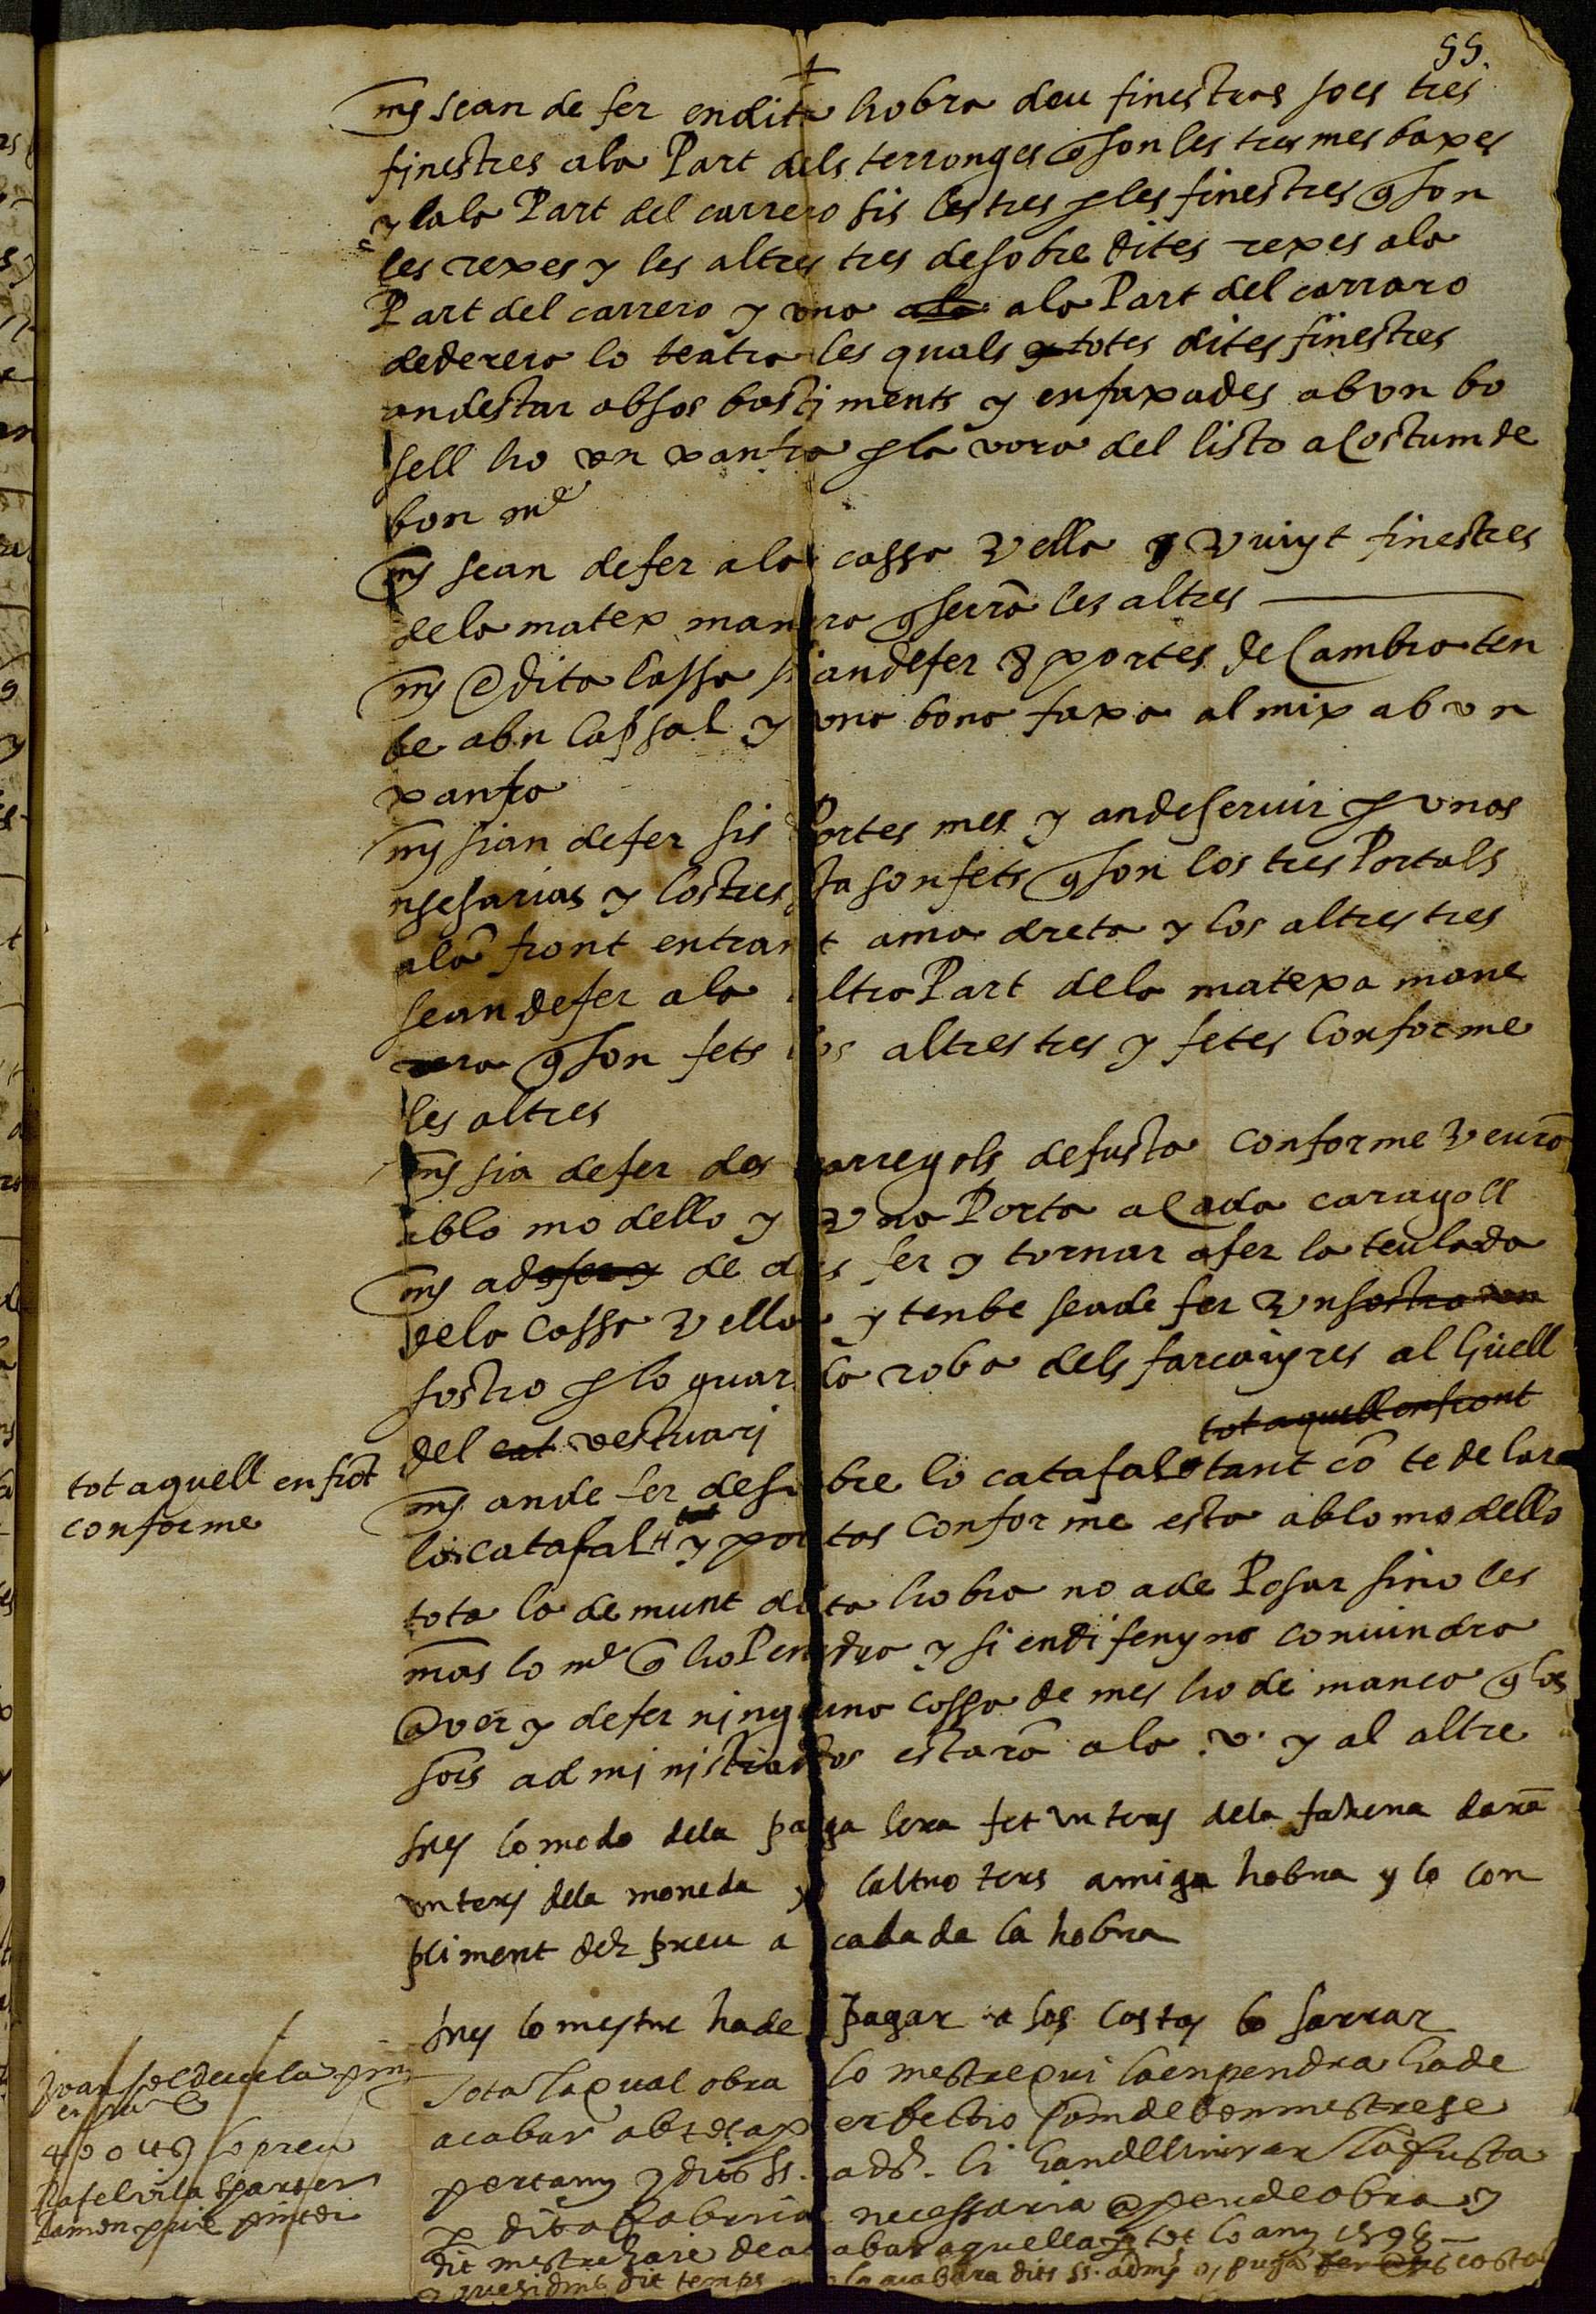 55.
mes sean de fer en dita hobra deu finestras soes tres
finestres a la Part dels terronges q son les tres mes baxes
y a la Part del carrero sis les tres p les finestres q son
les rexes y les altres tres de sobre dites rexes a la
Part del carrero y una ala a la Part del carraro
de derera lo teatro les quals y totes dites finestres
an destar ab sos bastiments y enfaxades ab un bo
sell ho un xanfra p la vora del listo a Costum de
bon me
mes sean de fer a la cassa vella y vuyt finestres
de la matex manera q serrã les altres
mes e dita Cassa sian de fer 8 portes de Cambra ten
be abn Cassal y una bona faxa al mix ab un
xanfra
mes sian de fer sis Portes mes y an de servir p unas
nsesarias y los tres ja son fets q son los tres Portals
a la front entrant a ma dreta y los altres tres
sean de fer a la altra Part de la matexa mane
rera q son fets los altres tres y fetes Conforme
les altres
mes sia de fer dos carregols de fusta conforme veurã
ab lo modello y una Porta a Cada caragoll
mes a de fer y de des fer y tornar a fer la teulada
de la Cassa vella y tenbe sea de fer un sostra un
sostro p lo guar la roba dels farcayres al huell
del eat vestuari
tot aquell en front
mes an de fer desobre lo catafal tant cõ te de larc
tot aquell en frõt
conforme
lo catafal y portas Conforme esta ab lo modello
tota la demunt dita hobra no a de Posar sino les
mãs lo me q ho Pendra y si en disseny no convindra
aver y de fer ninguna Cossa de mes ho de manco q los
sors administrados estarã a la .v. y al altre
Ines lo modo dela paga sera fet un ters dela fahena darã
un ters dela moneda y laltro ters a miga hobra y lo con
pliment del preu a cabada la hobra
Ines lo mestre ha de pagar a sos Costas lo sarrar
Tota la qual obra lo mestre qui la enpendra ha de
acabar ab tota perfectio com de bon mestre se
pertany y dits ss. ads. li han dlliurar la fusta
p dita fabrica necessaria a peu de obra y
dit mestre haie de acabar aquella p tot lo any 1598
y que si dins dit temps no la acabara dits ss. adms o, pugã fer a ses costas
Joan soldevila
40 o 49 lo preu
Rafel vila sparter
Ramon puic pintor